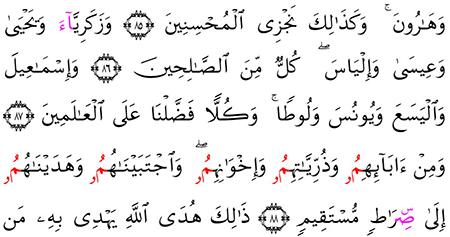 وَهَٰرُونَ ۚ وَكَذَٰلِكَ نَجْزِى ٱلْمُحْسِنِينَ ۝٨٥ وَزَكَرِيَّآءَ وَيَحْيَىٰ
وَعِيسَىٰ وَإِلْيَاسَ ۖ كُلٌّ مِّنَ ٱلصَّٰلِحِينَ ۝٨٦ وَإِسْمَٰعِيلَ
وَٱلْيَسَعَ وَيُونُسَ وَلُوطًا ۚ وَكُلًّا فَضَّلْنَا عَلَى ٱلْعَٰلَمِينَ ۝٨٧
وَمِنْ ءَابَآئِهِمُۥ وَذُرِّيَّٰتِهِمُۥ وَإِخْوَٰنِهِمُۥ ۖ وَٱجْتَبَيْنَٰهُمُۥ وَهَدَيْنَٰهُمُۥ
إِلَىٰ صِۜرَٰطٍ مُّسْتَقِيمٍ ۝٨٨ ذَٰلِكَ هُدَى ٱللَّهِ يَهْدِى بِهِۦ مَن